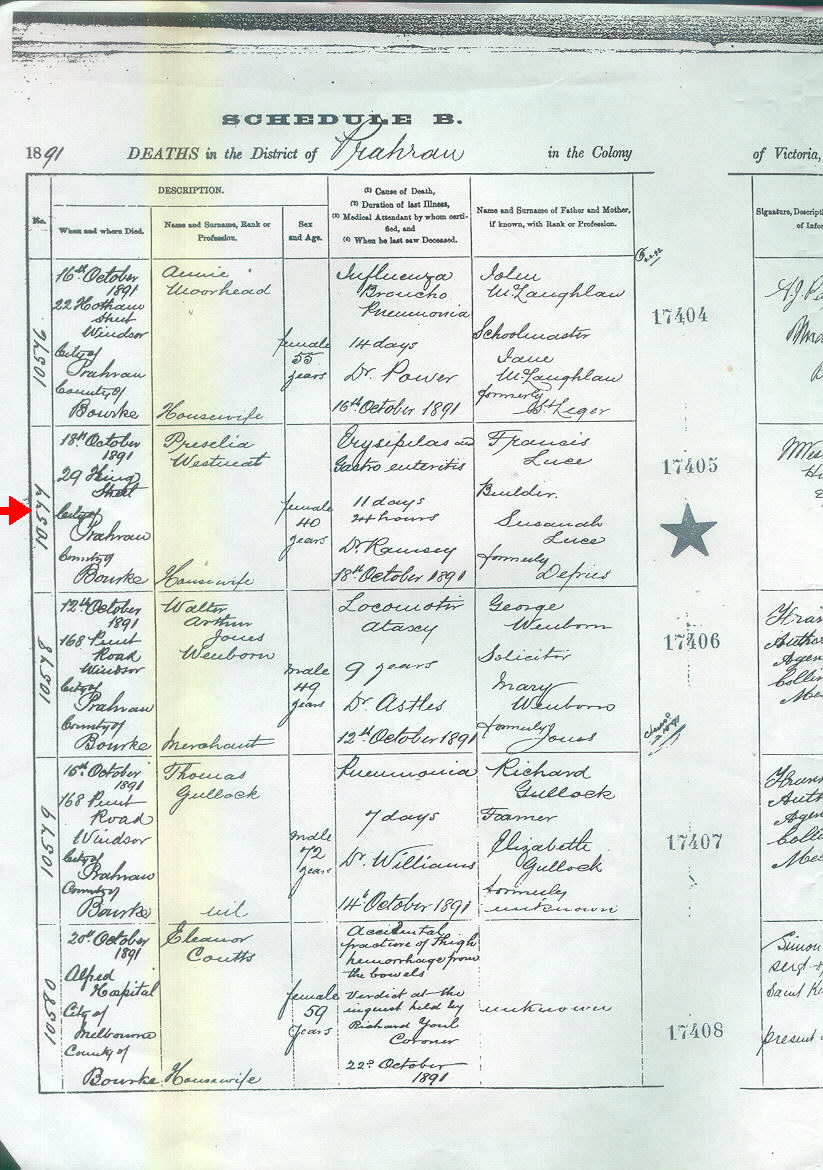 SCHEDULE B.
1891 DEATHS in the District of Prahran in the Colony of Victoria,
No.
DESCRIPTION.
When and where Died.
Name and Surname, Rank or
Profession.
Sex
and Age.
(1) Cause of Death,
(2) Duration of last Illness,
(3) Medical Attendant by whom certi-
fied, and
(4) When he last saw Deceased.
Name and Surname of Father and Mother,
if known, with Rank or Profession.
Signature, Descripti
of Infor
10576
16th October
1891
22 Hotham
Street
Windsor
City of
Prahran
County of
Bourke
Annie
Moorhead
Housewife
female
55
years
Influenza
Broncho
Pneumonia
14 days
Dr. Power
16th October 1891
John
McLaughlan
Schoolmaster
Jane
McLaughlan
formerly
St Leger
17404
10577
18th October
1891
29 King
Street
City of
Prahran
County of
Bourke
Preselia
Westneat
Housewife
female
40
years
Erysipelas and
Gastro enteritis
11 days
24 hours
Dr. Ramsey
18th October 1891
Francis
Luce
Builder.
Susanah
Luce
formerly
Defries
17405
10578
12th October
1891
168 Punt
Road
Windsor
City of
Prahran
County of
Bourke
Walter
Arthur
Jones
Wenborn
Merchant
male
49
years
Locomotir
Ataxy
9 years
Dr. Astles
12th October 1891
George
Wenborn
Solicitor
Mary
Wenborn
formerly
Jones
17406
10579
16th October
1891
168 Punt
Road
Windsor
City of
Prahran
County of
Bourke
Thomas
Gullock
nil
male
72
years
Pneumonia
7 days
Dr. Williams
14th October 1891
Richard
Gullock
Farmer
Elizabeth
Gullock
formerly
unknown
17407
10580
20th October
1891
Alfred
Hospital
City of
Melbourne
County of
Bourke
Eleanor
Coutts
Housewife
female
59
years
Accidental
fracture of thigh
hemorrhage from
the bowels
Verdict at the
inquest held by
Richard Youl
Coroner
22d October
1891
unknown
17408
Simon
sergt of
Saint K
present